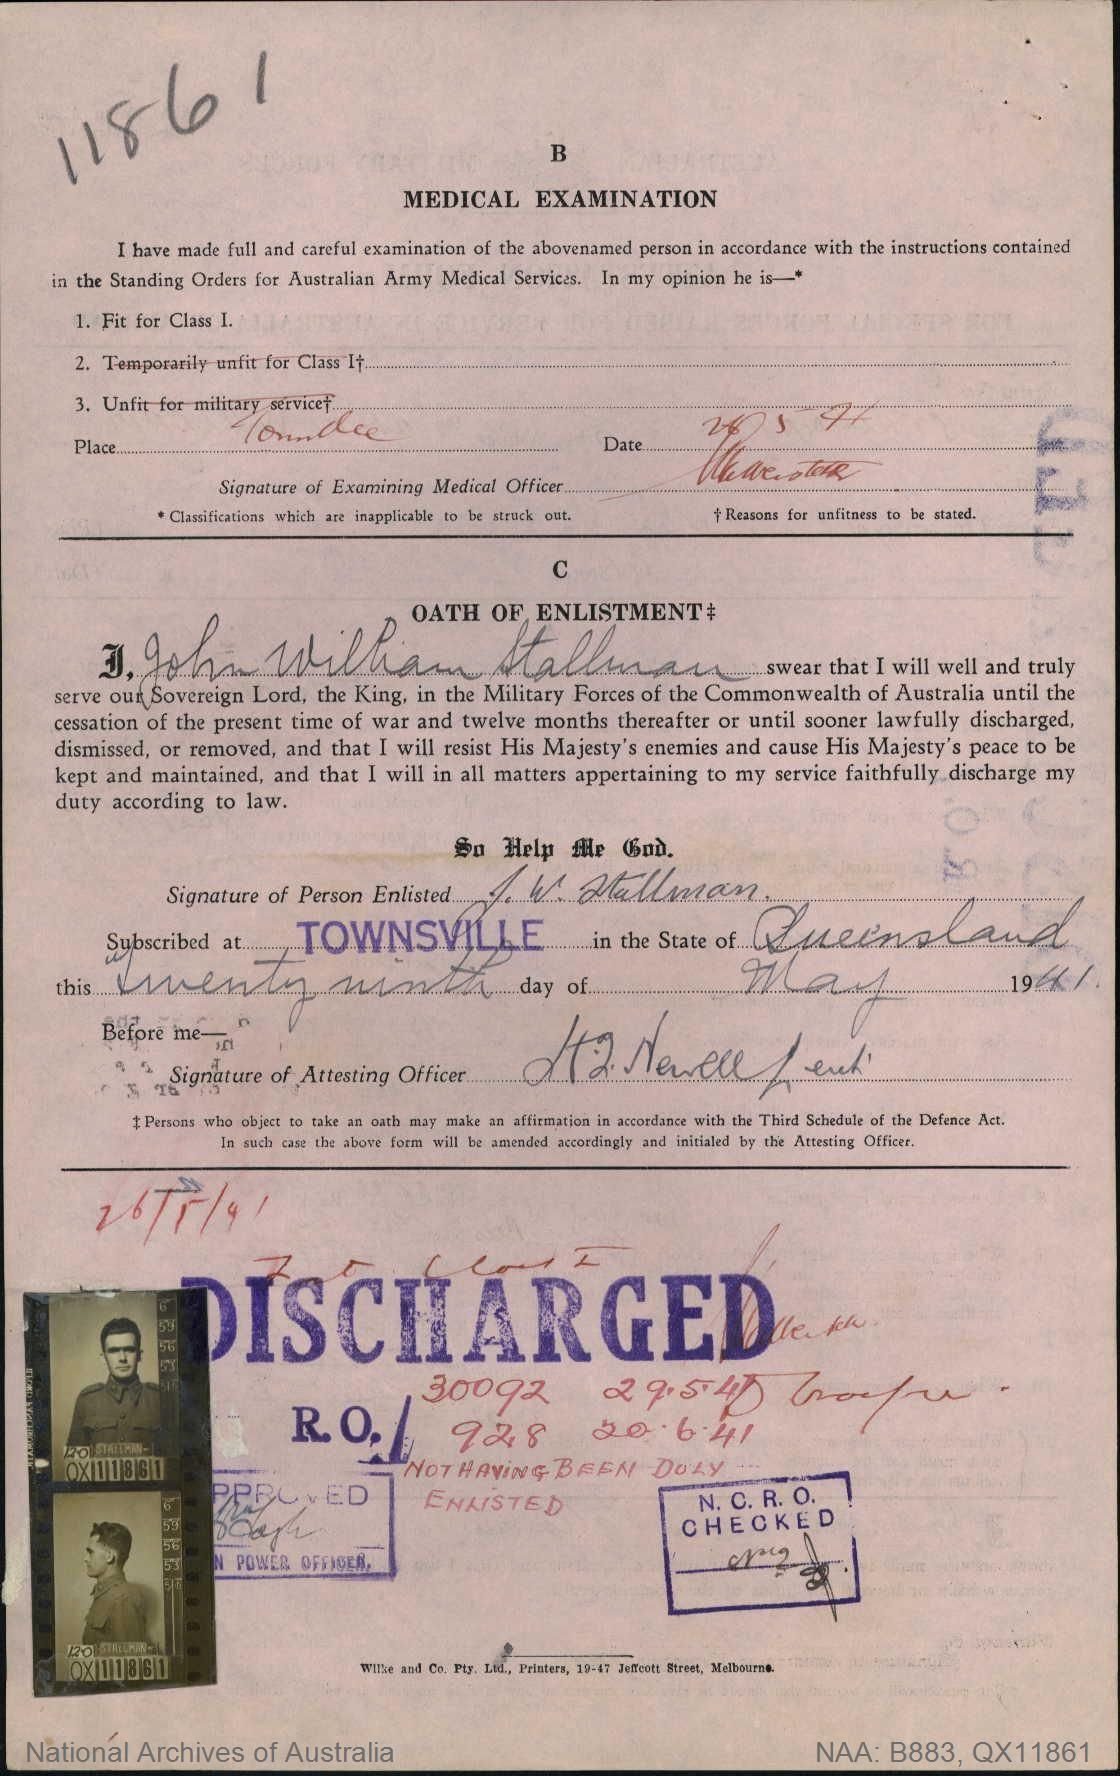 11861
B
MEDICAL EXAMINATION
I have made full and careful examination of the abovenamed person in accordance with the instructions contained
in the Standing Orders for Australian Army Medical Services. In my opinion he is—*
1. Fit for Class I.
2. Temporarily unfit for Class I†
3. Unfit for military service†
Place Date 28 5 41
Signature of Examining Medical Officer
* Classifications which are inapplicable to be struck out. † Reasons for unfitness to be stated.
C
OATH OF ENLISTMENT‡
I, John William Stallman swear that I will well and truly
serve our Sovereign Lord, the King, in the Military Forces of the Commonwealth of Australia until the
cessation of the present time of war and twelve months thereafter or until sooner lawfully discharged,
dismissed, or removed, and that I will resist His Majesty's enemies and cause His Majesty's peace to be
kept and maintained, and that I will in all matters appertaining to my service faithfully discharge my
duty according to law.
So Help Me God.
Signature of Person Enlisted J. W. Stallman.
Subscribed at TOWNSVILLE in the State of Queensland
this twenty ninth day of May 1941.
Before me—
Signature of Attesting Officer H. J. Newell Lieut
‡ Persons who object to take an oath may make an affirmation in accordance with the Third Schedule of the Defence Act.
In such case the above form will be amended accordingly and initialed by the Attesting Officer.
26/5/41
Fit Class I
DISCHARGED
30092 29.5.41
R.O. 928 20.6.41
NOT HAVING BEEN DULY
ENLISTED
PPROVED
N POWER OFFICER.
N. C. R. O.
CHECKED
120 STALLMAN
QX11861
120 STALLMAN
QX11861
Wilke and Co. Pty. Ltd., Printers, 19-47 Jeffcott Street, Melbourne.
National Archives of Australia NAA: B883, QX11861